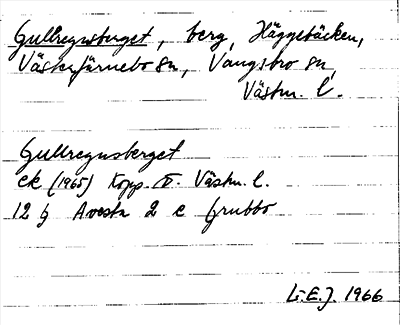 Gullregnsberget, berg, Häggebäcken,
Västerfärnebo sn, Vangsbro sn,
Västm. l.
Gullregnsberget
ek (1965) Kopp. o. Västm. l.
12 G Avesta 2 c Grubbo
L.E.J. 1966